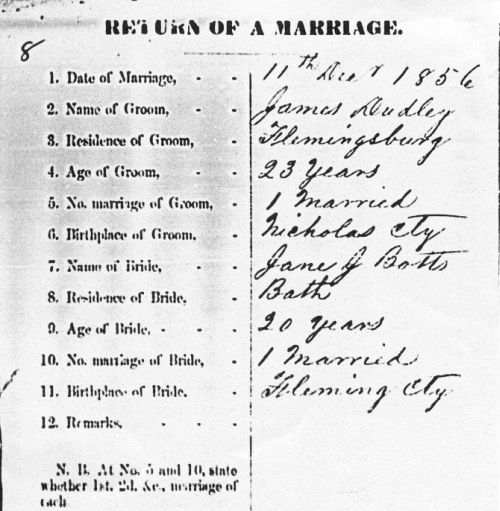 8
RETURN OF A MARRIAGE.
1. Date of Marriage, - - 11th Decr 1856
2. Name of Groom, - - James Dudley
3. Residence of Groom, - Flemingsburg
4. Age of Groom, - - 23 Years
5. No. marriage of Groom, - 1 Married
6. Birthplace of Groom, - Nicholas Cty
7. Name of Bride, - - Jane J Botts
8. Residence of Bride, - Bath
9. Age of Bride, - - - 20 Years
10. No. marriage of Bride, - 1 Married
11. Birthplace of Bride, - Fleming Cty
12. Remarks, - - -
N. B. At No. 5 and 10, state
whether 1st, 2d, &c., marriage of
each